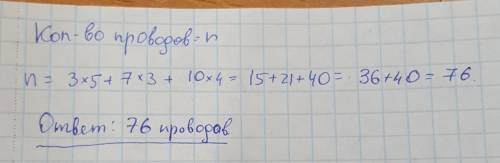 Кол-во проводов=n
n = 3×5+7×3+ 10×4= 15+21+40= 36+40=76.
Ответ: 76 проводов